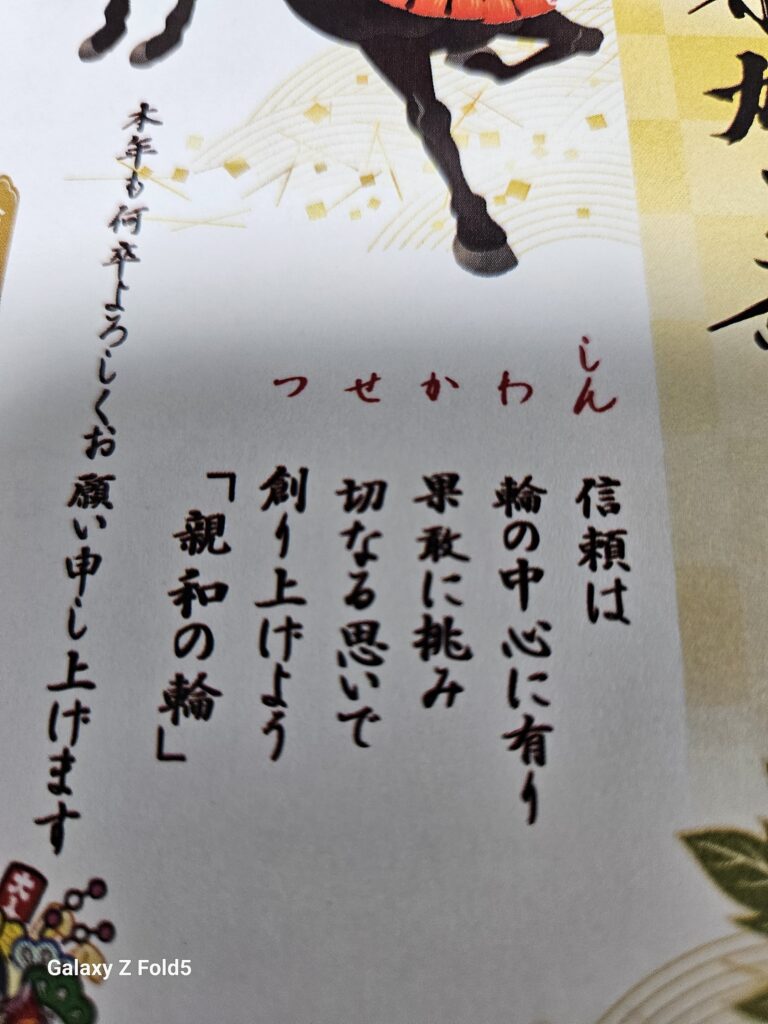 しん
わ
か
せ
つ
信頼は
輪の中心に有り
果敢に挑み
切なる思いで
創り上げよう
「親和の輪」
本年も何卒よろしくお願い申し上げます
Galaxy Z Fold5